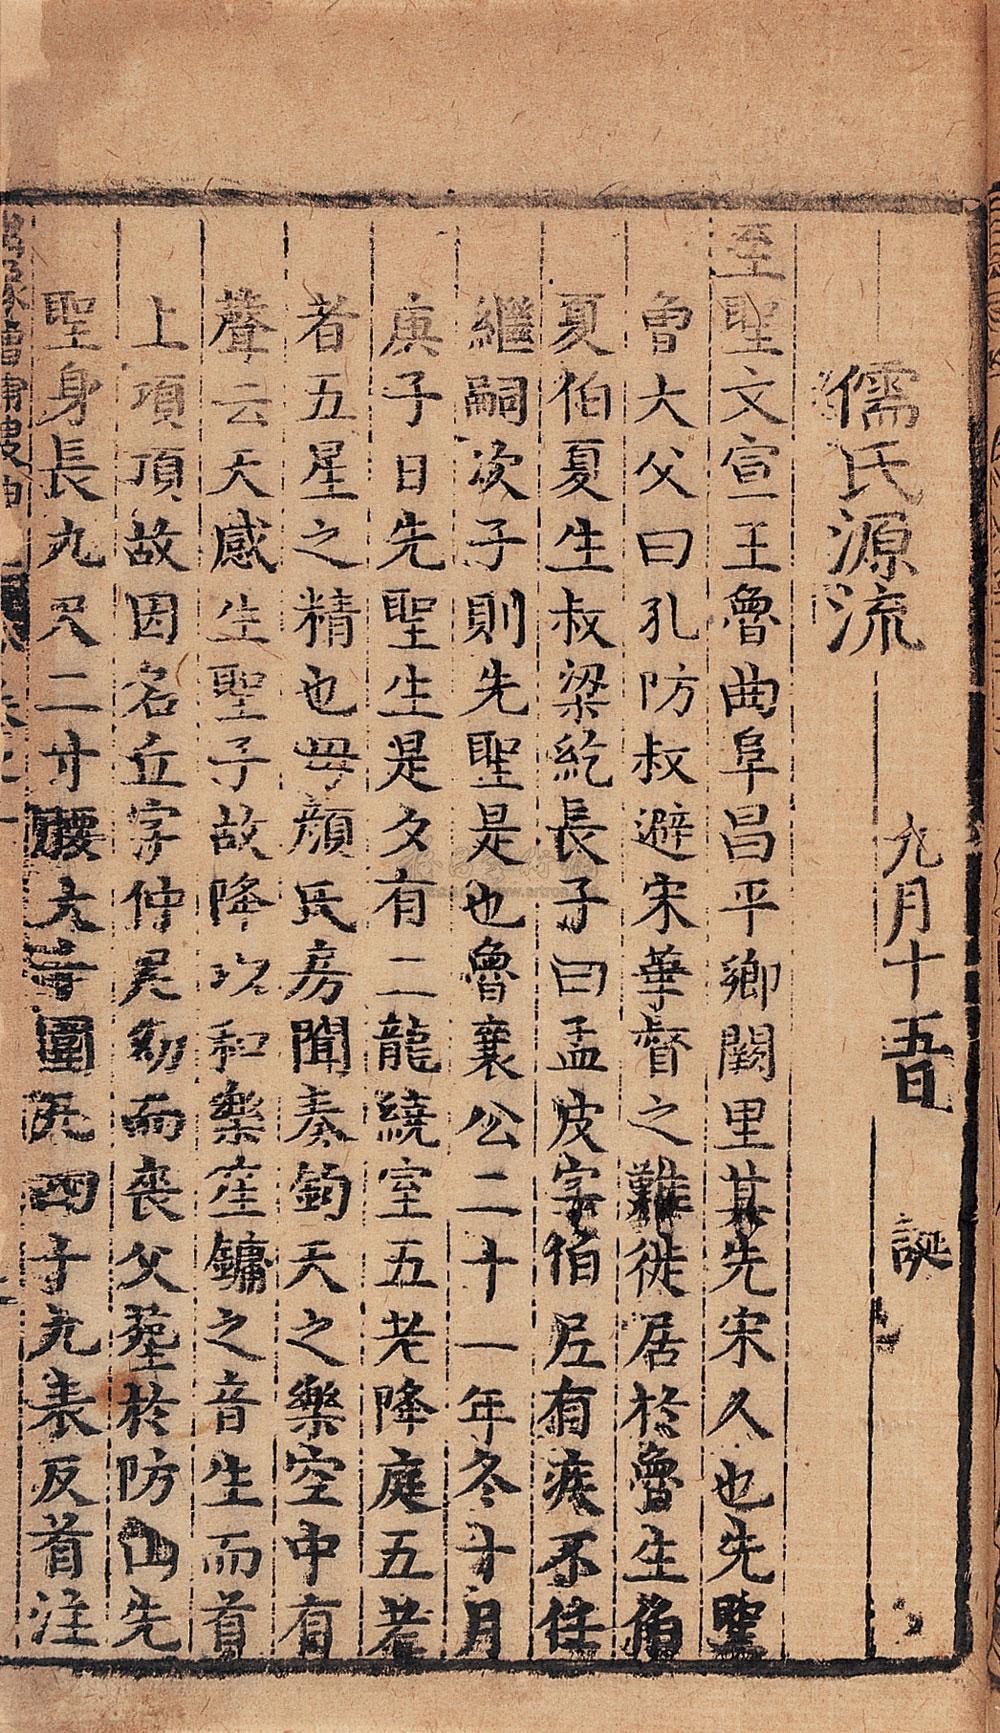 儒氏源流
九月十五日
誕
至聖文宣王魯曲阜昌平鄉闕里其先宋人也先聖
魯大父曰孔防叔避宋華督之難徙居於魯生伯
夏伯夏生叔梁紇長子曰孟皮字伯尼有疾不任
継嗣次子則先聖是也魯襄公二十一年冬十月
庚子日先聖生是夕有二龍繞室五老降庭五老
者五星之精也毋顔氏房聞奏鈞天之樂空中有
聲云天感生聖子故降以和樂笙鏞之音生而首
上項頂故因名丘字仲尼幼而喪父塟於防山先
聖身長九尺二寸腰大十圍凡四十九表反首注